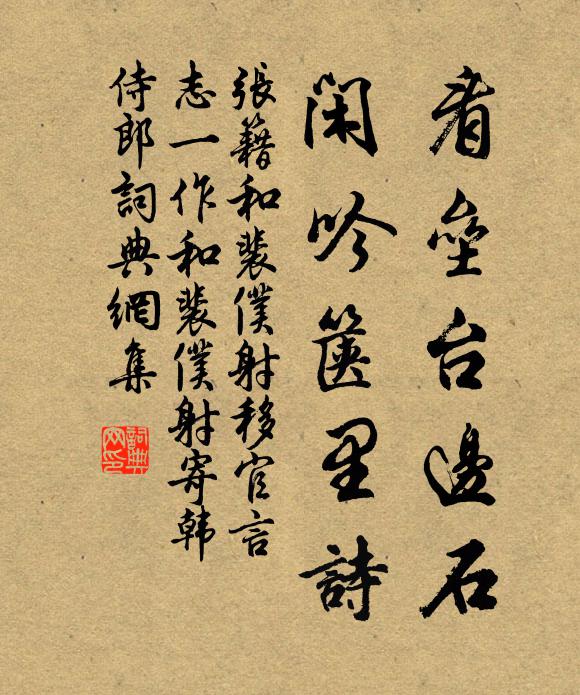 看壘台邊石
閑吟篋里詩
張籍和裴僕射移官言
志一作和裴僕射寄韩
侍郎詞典網集
詞典網印